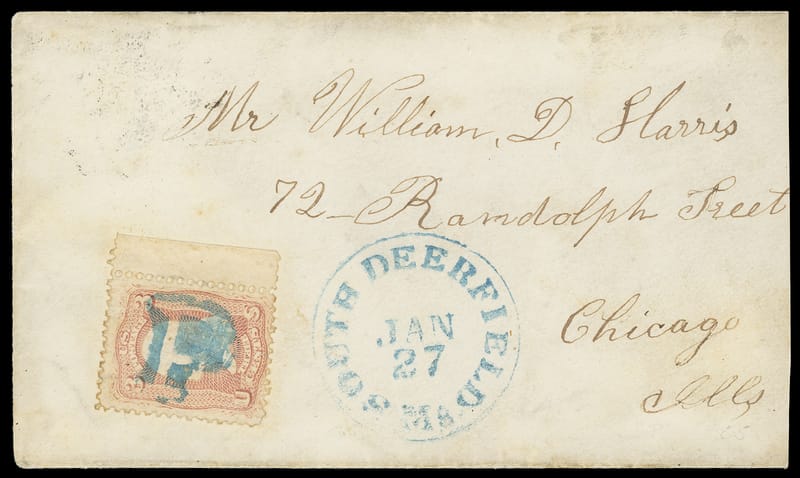 Mr William. D. Harris
72 - Randolph Sreet
Chicago
Ills
SOUTH DEERFIELD Ms
JAN
27